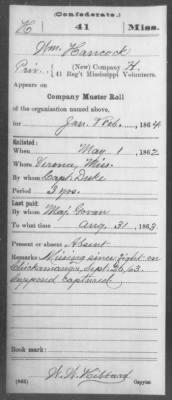 (Confederate.)
H 41 Miss.
Wm. Hancock
Priv., (New) Company H,
41 Reg't Mississippi Volunteers.
Appears on
Company Muster Roll
of the organization named above,
for Jan. & Feb., 1864
Enlisted:
When May 1, 1862
Where Verona, Miss.
By whom Capt. Duke
Period 3 yrs.
Last paid:
By whom Maj. Govan
To what time Aug. 31, 1863
Present or absent Absent
Remarks Missing since fight on
Chickamauga, Sept. 20, 63.
Supposed captured
Book mark:
Copyist.